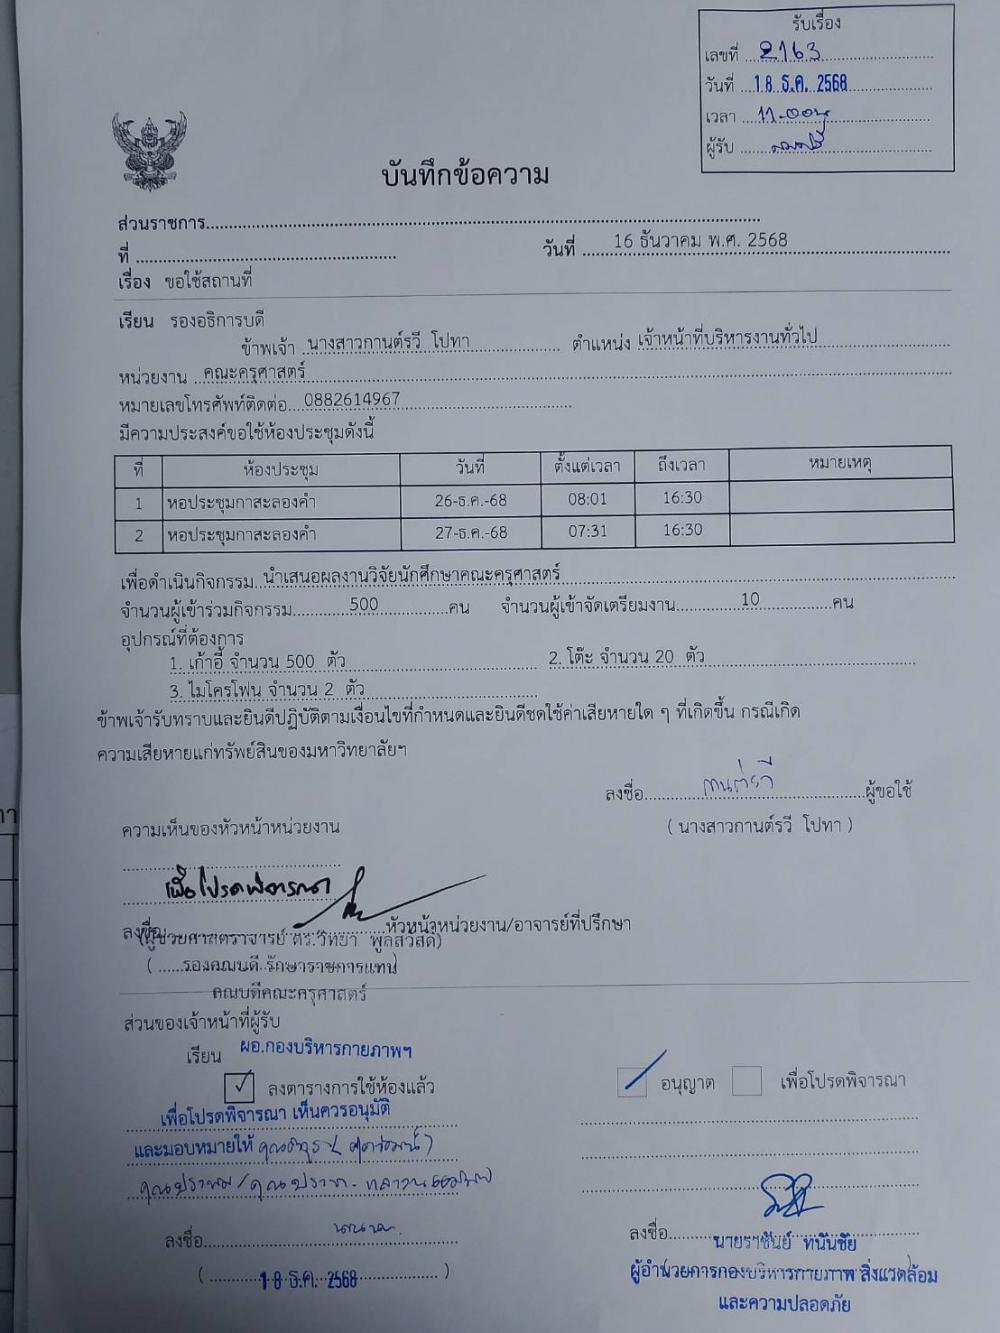 รับเรื่อง
เลขที่ 2163
วันที่ 18 ธ.ค. 2568
เวลา 11.00น
ผู้รับ
บันทึกข้อความ
ส่วนราชการ
ที่ วันที่ 16 ธันวาคม พ.ศ. 2568
เรื่อง ขอใช้สถานที่
เรียน รองอธิการบดี
ข้าพเจ้า นางสาวกานต์รวี โปทา ตำแหน่ง เจ้าหน้าที่บริหารงานทั่วไป
หน่วยงาน คณะครุศาสตร์
หมายเลขโทรศัพท์ติดต่อ 0882614967
มีความประสงค์ขอใช้ห้องประชุมดังนี้
ที่ ห้องประชุม วันที่ ตั้งแต่เวลา ถึงเวลา หมายเหตุ
1 หอประชุมกาสะลองคำ 26-ธ.ค.-68 08:01 16:30
2 หอประชุมกาสะลองคำ 27-ธ.ค.-68 07:31 16:30
เพื่อดำเนินกิจกรรม นำเสนอผลงานวิจัยนักศึกษาคณะครุศาสตร์
จำนวนผู้เข้าร่วมกิจกรรม 500 คน จำนวนผู้เข้าจัดเตรียมงาน 10 คน
อุปกรณ์ที่ต้องการ
1. เก้าอี้ จำนวน 500 ตัว 2. โต๊ะ จำนวน 20 ตัว
3. ไมโครโฟน จำนวน 2 ตัว
ข้าพเจ้ารับทราบและยินดีปฏิบัติตามเงื่อนไขที่กำหนดและยินดีชดใช้ค่าเสียหายใด ๆ ที่เกิดขึ้น กรณีเกิด
ความเสียหายแก่ทรัพย์สินของมหาวิทยาลัยฯ
ลงชื่อ กานต์รวี ผู้ขอใช้
( นางสาวกานต์รวี โปทา )
ความเห็นของหัวหน้าหน่วยงาน
เพื่อโปรดพิจารณา
ลงชื่อ หัวหน้าหน่วยงาน/อาจารย์ที่ปรึกษา
(ผู้ช่วยศาสตราจารย์ ดร.วิทยา พูลสวัสดิ์)
( รองคณบดี รักษาราชการแทน )
คณบดีคณะครุศาสตร์
ส่วนของเจ้าหน้าที่ผู้รับ
เรียน ผอ.กองบริหารกายภาพฯ
ลงตารางการใช้ห้องแล้ว อนุญาต เพื่อโปรดพิจารณา
เพื่อโปรดพิจารณา เห็นควรอนุมัติ
และมอบหมายให้
ลงชื่อ
( 18 ธ.ค. 2568 )
ลงชื่อ
นายราชันย์ ทนันชัย
ผู้อำนวยการกองบริหารกายภาพ สิ่งแวดล้อม
และความปลอดภัย